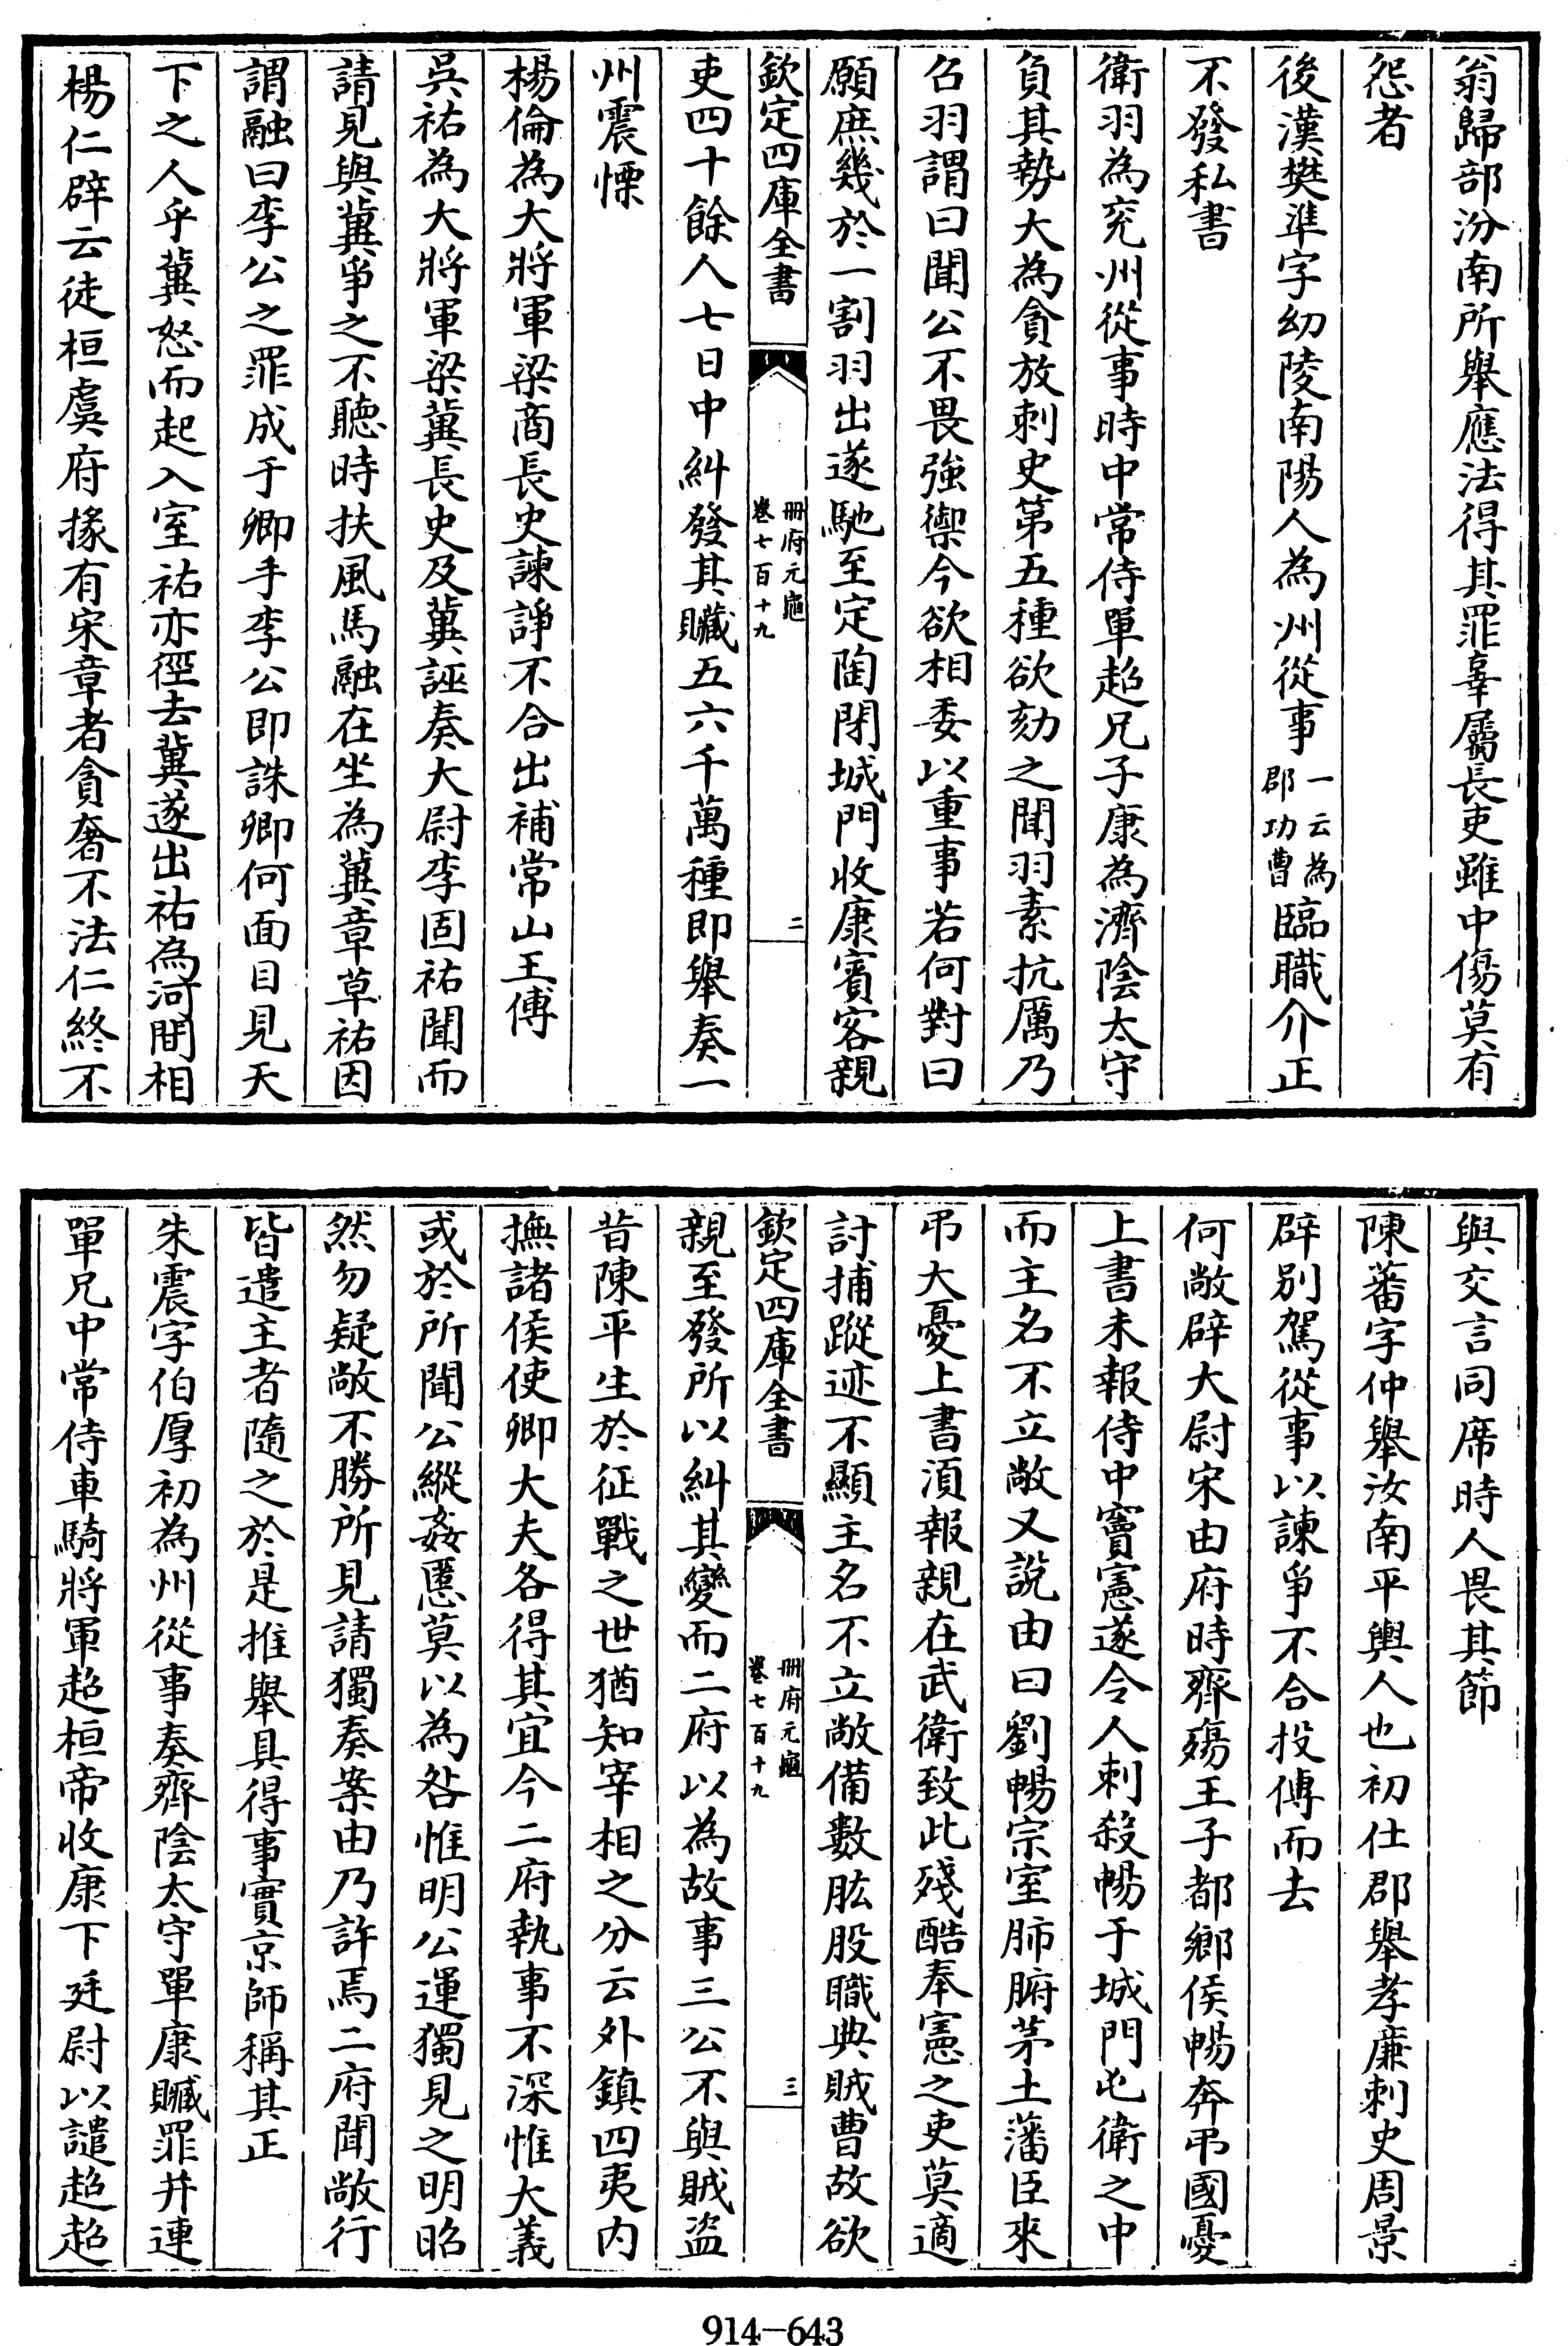 翁歸部汾南所舉應法得其罪辜屬長吏雖中傷莫有
怨者
後漢樊準字幼陵南陽人為州從事一云為郡功曹臨職介正
不發私書
衛羽為兖州從事時中常侍單超兄子康為濟陰太守
負其勢大為貪放刺史第五種欲劾之聞羽素抗厲乃
召羽謂曰聞公不畏強禦今欲相委以重事若何對曰
願庶幾於一割羽出遂馳至定陶閉城門收康賓客親
欽定四庫全書
冊府元龜
卷七百十九
二
吏四十餘人七日中糾發其贓五六千萬種即舉奏一
州震慄
楊倫為大將軍梁商長史諫諍不合出補常山王傅
吳祐為大將軍梁冀長史及冀誣奏大尉李固祐聞而
請見與冀爭之不聽時扶風馬融在坐為冀章草祐因
謂融曰李公之罪成于卿手李公即誅卿何面目見天
下之人乎冀怒而起入室祐亦徑去冀遂出祐為河間相
楊仁辟云徒桓虞府掾有宋章者貪奢不法仁終不
與交言同席時人畏其節
陳蕃字仲舉汝南平輿人也初仕郡舉孝廉刺史周景
辟別駕從事以諫爭不合投傳而去
何敞辟大尉宋由府時齊殤王子都鄉侯暢奔弔國憂
上書未報侍中竇憲遂令人刺殺暢于城門屯衛之中
而主名不立敞又說由曰劉暢宗室肺腑茅土藩臣來
弔大憂上書須報親在武衛致此殘酷奉憲之吏莫適
討捕蹤迹不顯主名不立敞備數肱股職典賊曹故欲
欽定四庫全書
冊府元龜
卷七百十九
三
親至發所以糾其變而二府以為故事三公不與賊盜
昔陳平生於征戰之世猶知宰相之分云外鎮四夷内
撫諸侯使卿大夫各得其宜今二府執事不深惟大義
或於所聞公縱姦慝莫以為咎惟明公運獨見之明昭
然勿疑敞不勝所見請獨奏案由乃許焉二府聞敞行
皆遣主者隨之於是推舉具得事實京師稱其正
朱震字伯厚初為州從事奏齊陰太守單康贓罪并連
單兄中常侍車騎將軍超桓帝收康下廷尉以譴超超
914-643